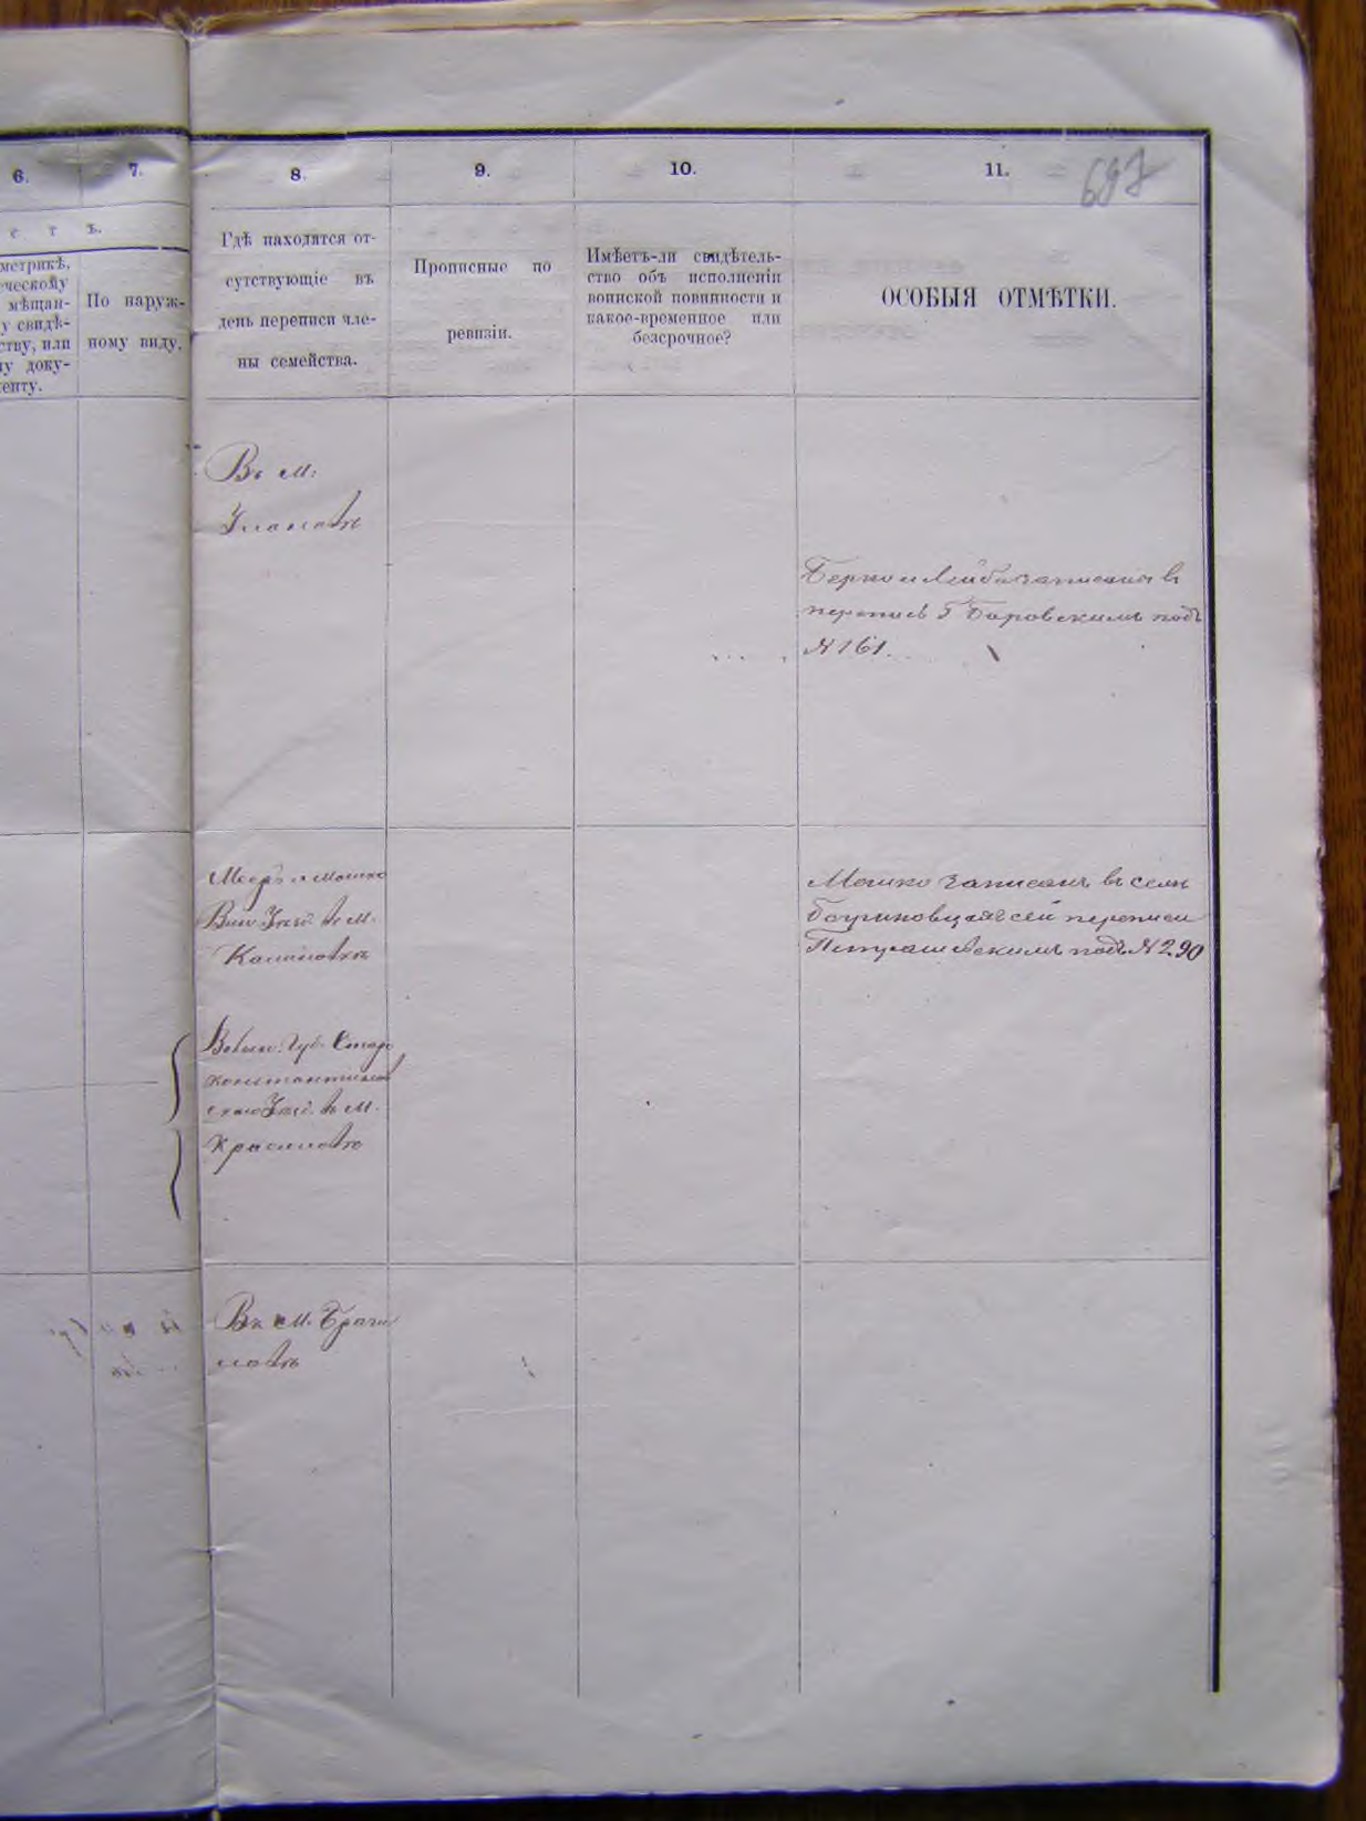 6.
7.
8.
9.
10.
11.
697
с т ъ.
метрикѣ,
ческому
мѣщан-
у свидѣ-
ству, или
му доку-
менту.
По наруж-
ному виду.
Гдѣ находятся от-
сутствующіе въ
день переписи чле-
ны семейства.
Прописные по
ревизіи.
Имѣетъ-ли свидѣтель-
ство объ исполненіи
воинской повинности и
какое-временное или
безсрочное?
ОСОБЫЯ ОТМѢТКИ.
Въ м:
Улановѣ
Берко и Лейба записаны в
перепись Боровскимъ подъ
№ 161.
Мееръ и Мошко
Вин. Уѣзд. въ м.
Калиновкѣ
Волын. Губ. Старо
константинов
скаго Уѣзд. въ м.
Красиловѣ
Мошко записанъ въ
сей переписи
подъ № 290
Въ м. Браги
ловѣ